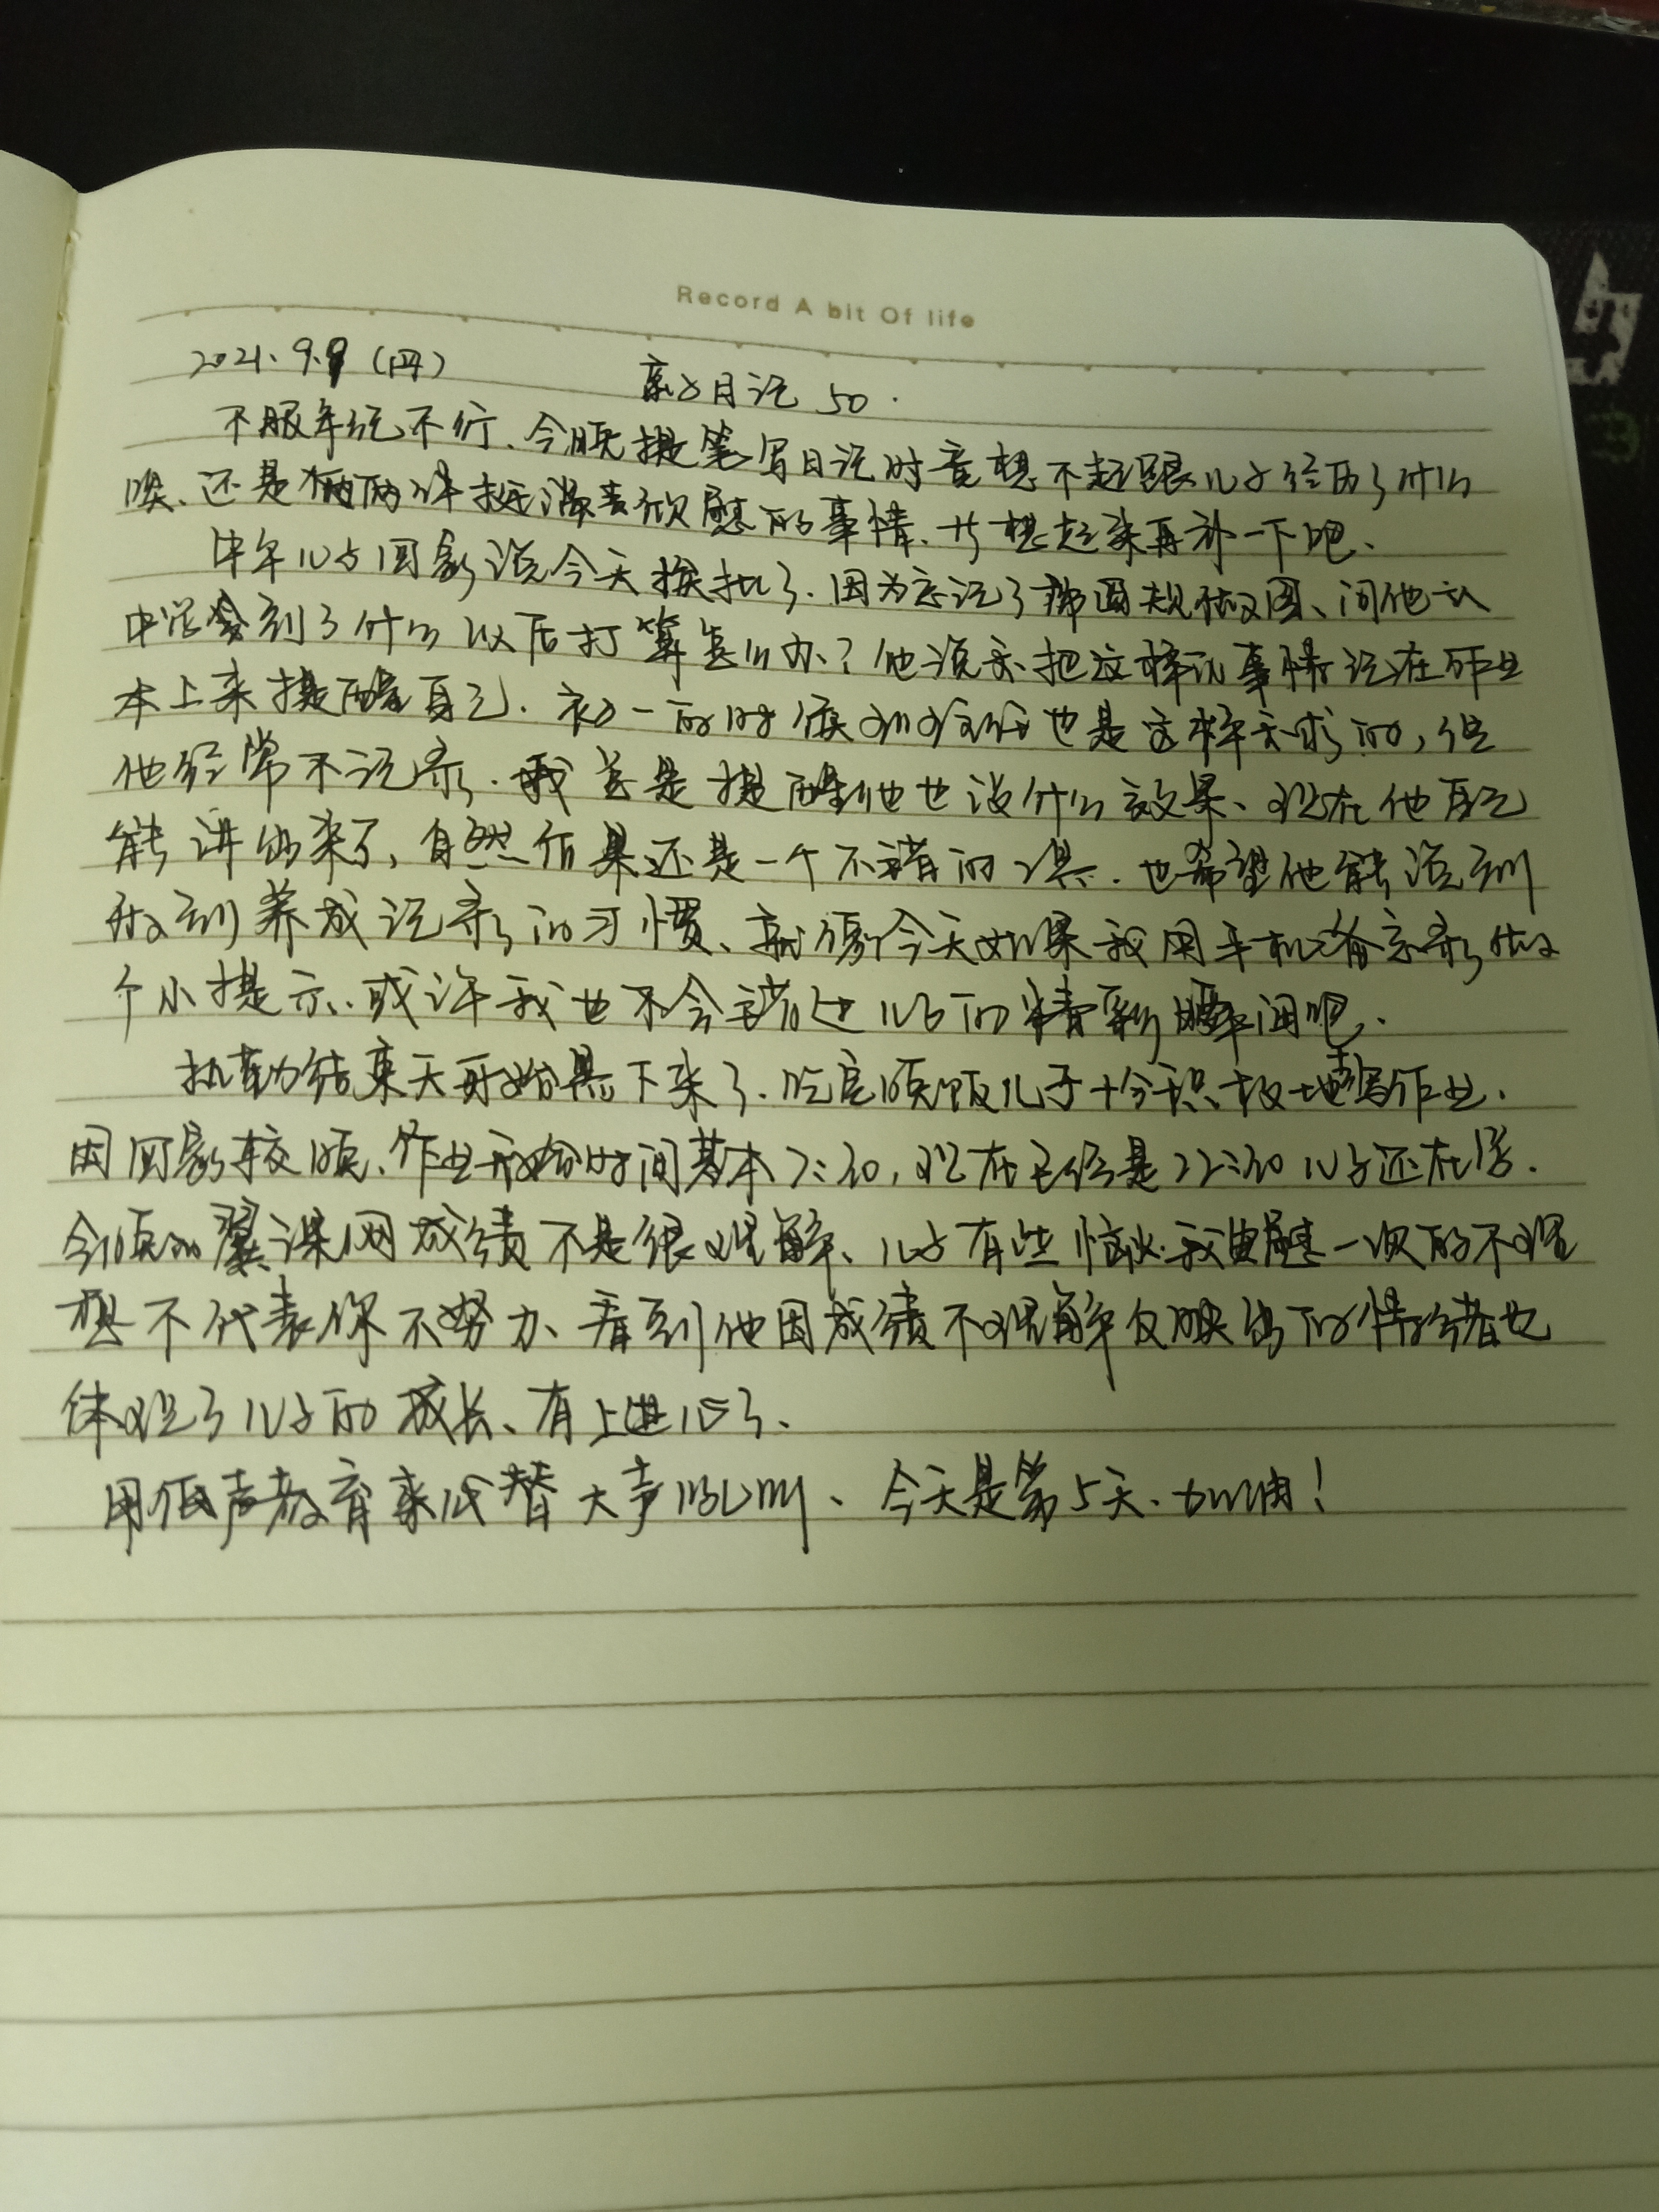 Record A bit Of life
2021.9.9（四）
亲子日记 50.
不服年纪不行、今晚提笔写日记时竟想不起跟儿子经历了什么
唉、还是两件挺满意欣慰的事情、等想起来再补一下吧、
中午儿子回家说今天挨批了.因为忘记了带圆规做图、问他从
中学会到了什么以后打算怎么办？他说要把这样的事情记在作业
本上来提醒自己.初一的时候班主任也是这样要求的,但
他经常不记录.我总是提醒他也没什么效果、现在他自己
能讲出来了,自然后果还是一个不错的课.也希望他能说到
做到养成记录的习惯、就像今天如果我用手机备忘录做
个小提示、或许我也不会错过儿子的精彩瞬间吧、
执勤结束天开始黑下来了.吃完晚饭儿子十分积极地写作业.
因回家较晚、作业开始时间基本7:30,现在已经是22:30儿子还在学.
今晚的翼课网成绩不是很理解、儿子有些恼火.我安慰一次的不理
想不代表你不努力、看到他因成绩不理解反映出的情绪也
体现了儿子的成长、有上进心了、
用低声教育来代替大声吼叫、今天是第5天、加油！